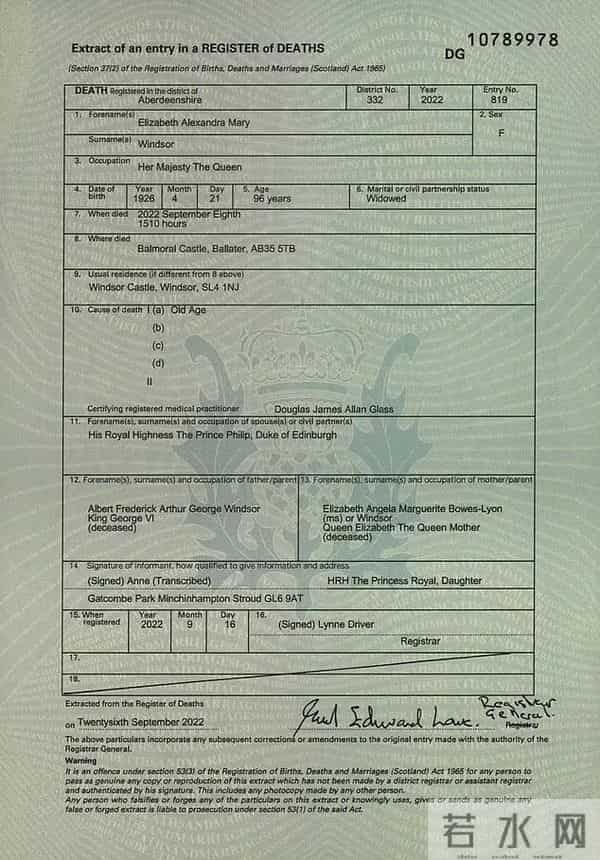 Extract of an entry in a REGISTER of DEATHS
DG 10789978
(Section 37(2) of the Registration of Births, Deaths and Marriages (Scotland) Act 1965)
DEATH Registered in the district of
Aberdeenshire
District No.
332
Year
2022
Entry No.
819
1. Forename(s)
Elizabeth Alexandra Mary
2. Sex
F
Surname(s)
Windsor
3. Occupation
Her Majesty The Queen
4. Date of birth
Year Month Day
1926 4 21
5. Age
96 years
6. Marital or civil partnership status
Widowed
7. When died
2022 September Eighth
1510 hours
8. Where died
Balmoral Castle, Ballater, AB35 5TB
9. Usual residence (if different from 8 above)
Windsor Castle, Windsor, SL4 1NJ
10. Cause of death I (a) Old Age
(b)
(c)
(d)
II
Certifying registered medical practitioner Douglas James Allan Glass
11. Forename(s), surname(s) and occupation of spouse(s) or civil partner(s)
His Royal Highness The Prince Philip, Duke of Edinburgh
12. Forename(s), surname(s) and occupation of father/parent
Albert Frederick Arthur George Windsor
King George VI
(deceased)
13. Forename(s), surname(s) and occupation of mother/parent
Elizabeth Angela Marguerite Bowes-Lyon
(ms) or Windsor
Queen Elizabeth The Queen Mother
(deceased)
14 Signature of informant, how qualified to give information and address
(Signed) Anne (Transcribed) HRH The Princess Royal, Daughter
Gatcombe Park Minchinhampton Stroud GL6 9AT
15. When registered
Year Month Day
2022 9 16
16.
(Signed) Lynne Driver
Registrar
17.
18.
Extracted from the Register of Deaths
on Twentysixth September 2022
Registrar
General.
Registrar
The above particulars incorporate any subsequent corrections or amendments to the original entry made with the authority of the
Registrar General.
Warning
It is an offence under section 53(3) of the Registration of Births, Deaths and Marriages (Scotland) Act 1965 for any person to
pass as genuine any copy or reproduction of this extract which has not been made by a district registrar or assistant registrar
and authenticated by his signature. This includes any photocopy made by any other person.
Any person who falsifies or forges any of the particulars on this extract or knowingly uses, gives or sends as genuine any
false or forged extract is liable to prosecution under section 53(1) of the said Act.
若水网